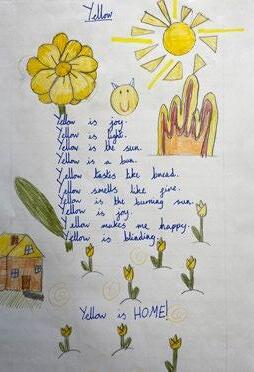 Yellow
Yellow is joy.
Yellow is light.
Yellow is the sun.
Yellow is a bun.
Yellow tastes like bread.
Yellow smells like fire.
Yellow is the burning sun.
Yellow is joy.
Yellow makes me happy.
Yellow is blinding.
Yellow is HOME!